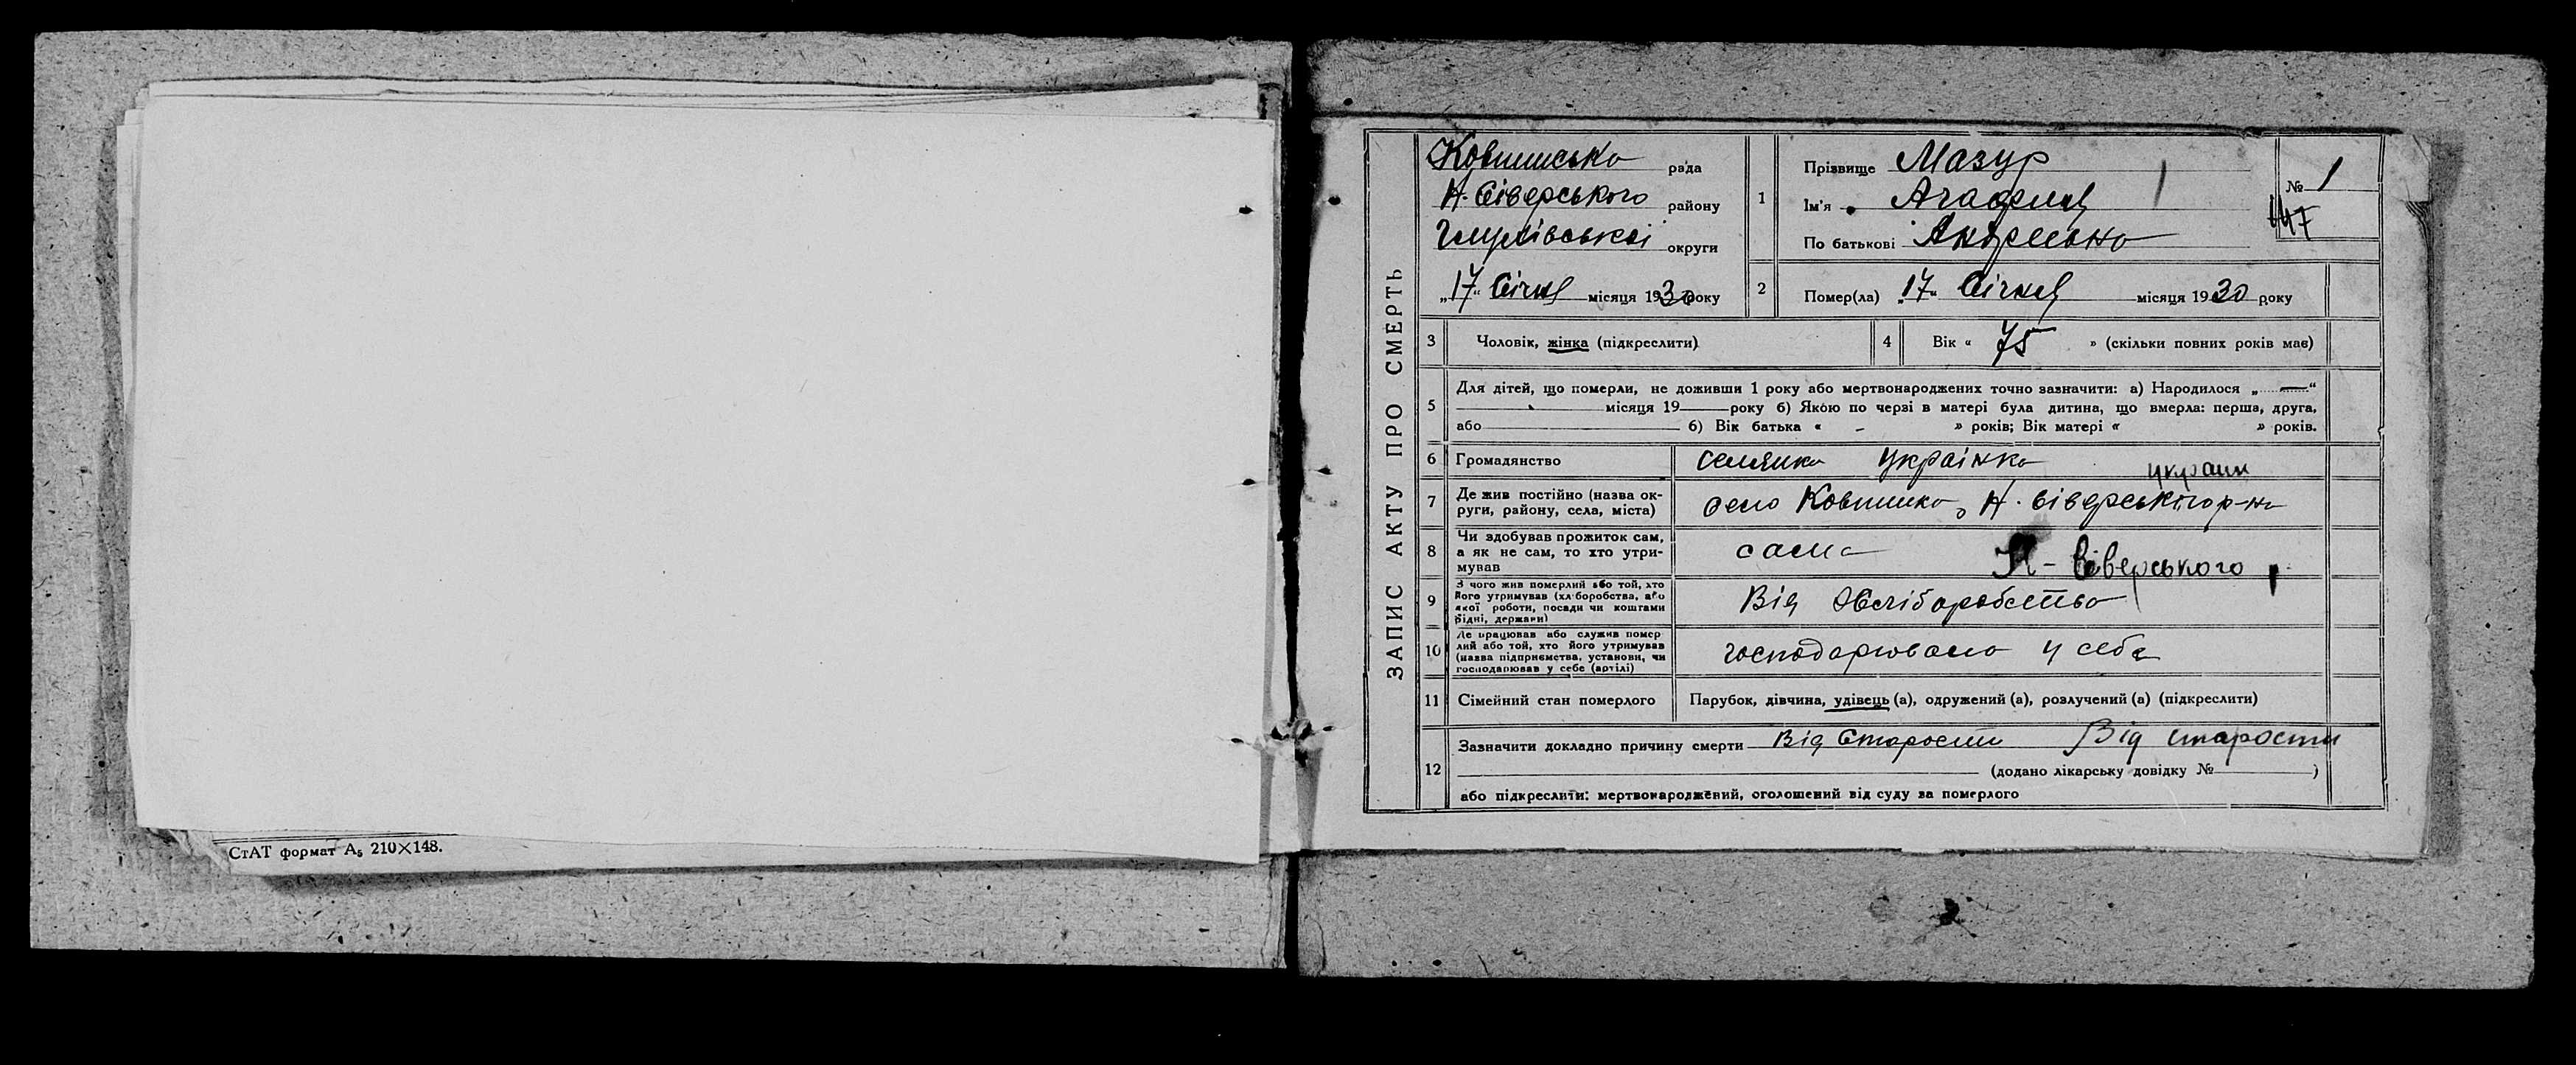 СтАТ формат А5 210×148.
ЗАПИС АКТУ ПРО СМЕРТЬ
Ковпинська рада
Н. Сіверського району
Глухівської округи
„17“ Січня місяця 1930 року
1 Прізвище Мазур
Ім'я
По батькові Андреевна
№ 1
147
2 Помер(ла) „17“ Січня місяця 1930 року
3 Чоловік, жінка (підкреслити)
4 Вік « 75 » (скільки повних років має)
5 Для дітей, що померли, не доживши 1 року або мертвонароджених точно зазначити: а) Народилося „ — “
місяця 19 — року б) Якою по черзі в матері була дитина, що вмерла: перша, друга,
або б) Вік батька « – » років; Вік матері « » років.
6 Громадянство селянка українка
україн
7 Де жив постійно (назва округи, району, села, міста) село Ковпинка, Н. Сіверського р-на
8 Чи здобував прожиток сам,
а як не сам, то хто утри-
мував сама
Н-Сіверського р
9 З чого жив померлий або той, хто
його утримував (хліборобства, або
якої роботи, посади чи коштами
рідні, держави) Від Хліборобства
10 Де працював або служив помер
лий або той, хто його утримував
(назва підприємства, установи, чи
господарював у себе (артілі) господарювала у себе
11 Сімейний стан померлого Парубок, дівчина, удівець (а), одружений (а), розлучений (а) (підкреслити)
12 Зазначити докладно причину смерти Від Старости Від старости
(додано лікарську довідку № )
або підкреслити: мертвонароджений, оголошений від суду за померлого